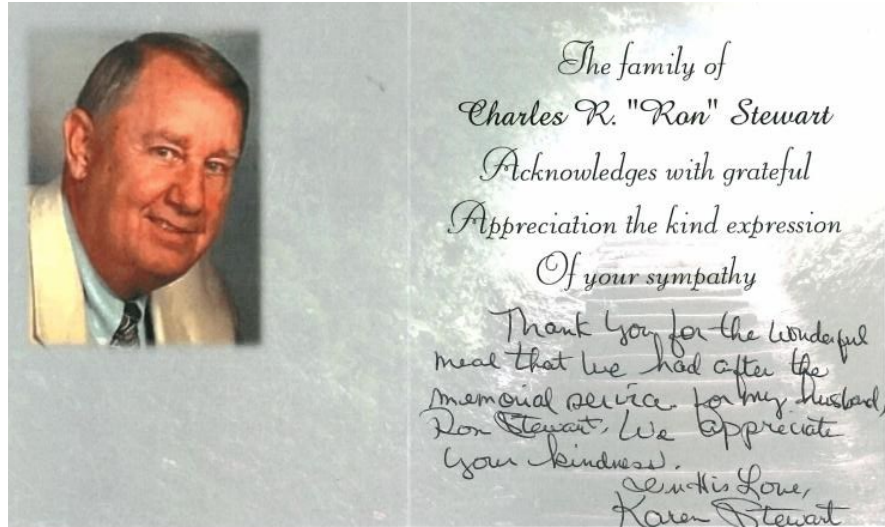 The family of
Charles R. "Ron" Stewart
Acknowledges with grateful
Appreciation the kind expression
Of your sympathy
Thank You for the wonderful
meal that we had after the
memorial service for my husband,
Ron Stewart. We appreciate
your kindness.
In His Love,
Karen Stewart